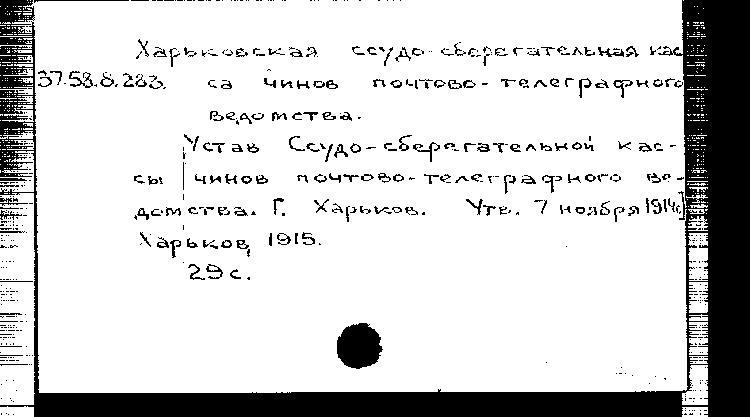 Харьковская ссудо-сберегательная кас
37.58.8.283. са чинов почтово-телеграфного
ведомства.
Устав Ссудо-сберегательной кас-
сы чинов почтово-телеграфного ве-
домства. Г. Харьков. Утв. 7 ноября 1914г.]
Харьков, 1915.
29 с.